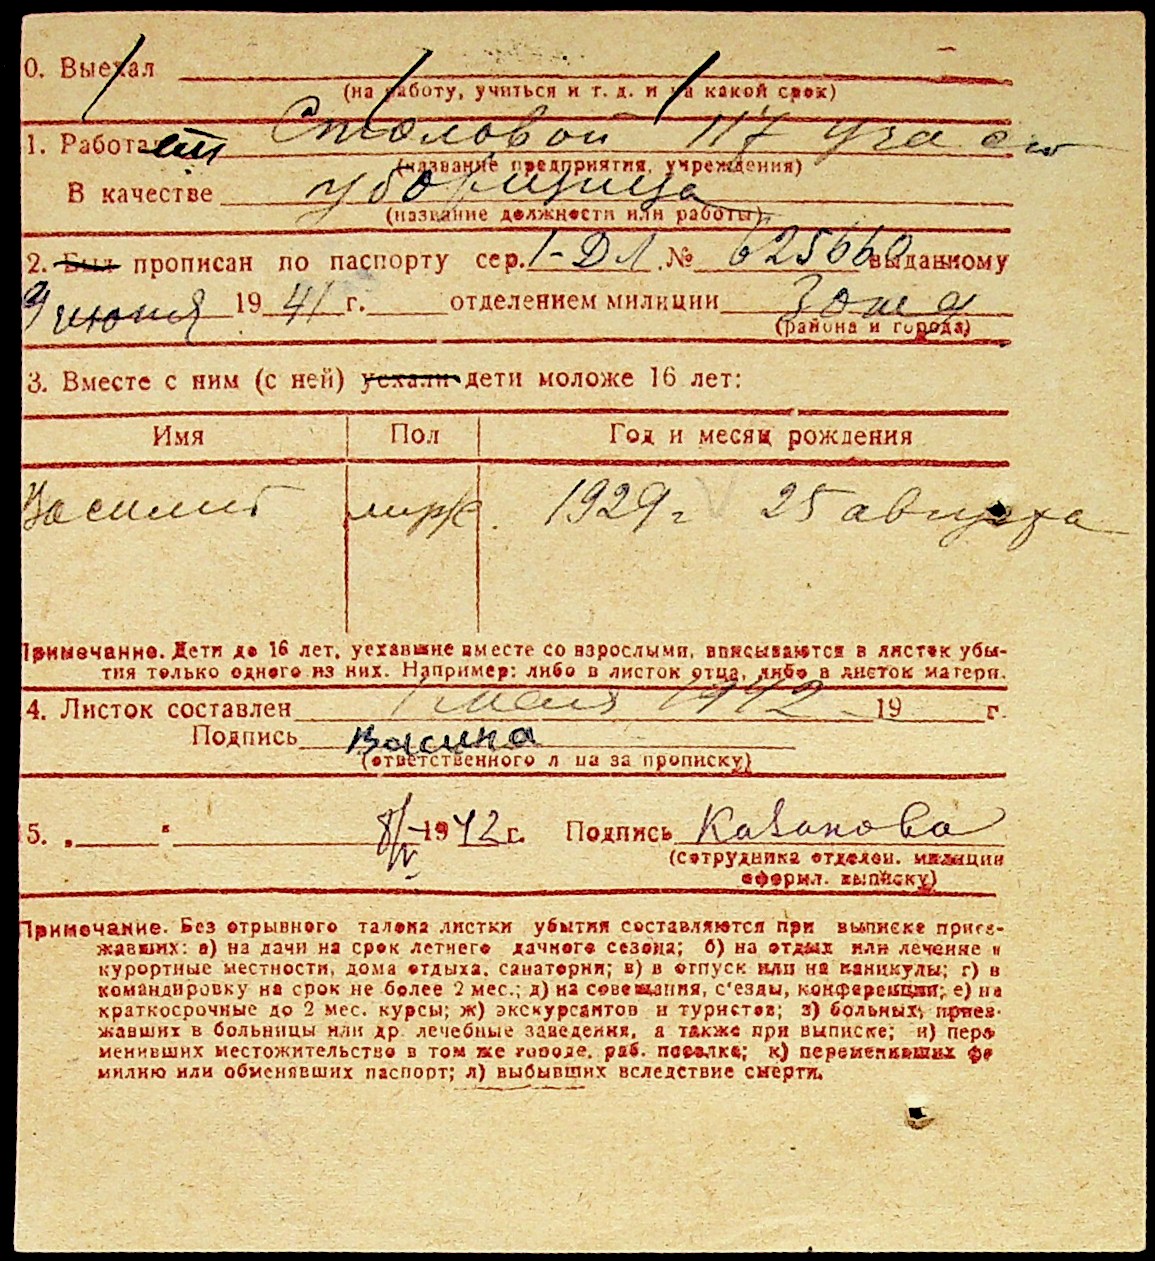 0. Выехал
(на работу, учиться и т. д. и на какой срок)
1. Работает Столовой 117
(название предприятия, учреждения)
В качестве уборщица
(название должности или работы)
2. Был прописан по паспорту сер. I-ДЛ № 625660 выданному
9 июня 19 41 г. отделением милиции
(района и города)
3. Вместе с ним (с ней) уехали дети моложе 16 лет:
Имя Пол Год и месяц рождения
Василий муж. 1929 г 25 августа
Примечание. Дети до 16 лет, уехавшие вместе со взрослыми, вписываются в листок убы-
тия только одного из них. Например: либо в листок отца, либо в листок матери.
4. Листок составлен 1 мая 1942 19 г.
Подпись Васина
(ответственного л ца за прописку)
5. „ " 8/IV 1942 г. Подпись Казакова
(сотрудника отделен. милиции
оформл. выписку)
Примечание. Без отрывного талона листки убытия составляются при выписке приез-
жавших: а) на дачи на срок летнего дачного сезона; б) на отдых или лечение в
курортные местности, дома отдыха, санатории; в) в отпуск или на каникулы; г) в
командировку на срок не более 2 мес.; д) на совещания, с'езды, конференции; е) на
краткосрочные до 2 мес. курсы; ж) экскурсантов и туристов; з) больных, приез-
жавших в больницы или др. лечебные заведения, а также при выписке; и) пере
менивших местожительство в том же городе, раб. поселке; к) переменивших фа
милию или обменявших паспорт; л) выбывших вследствие смерти.